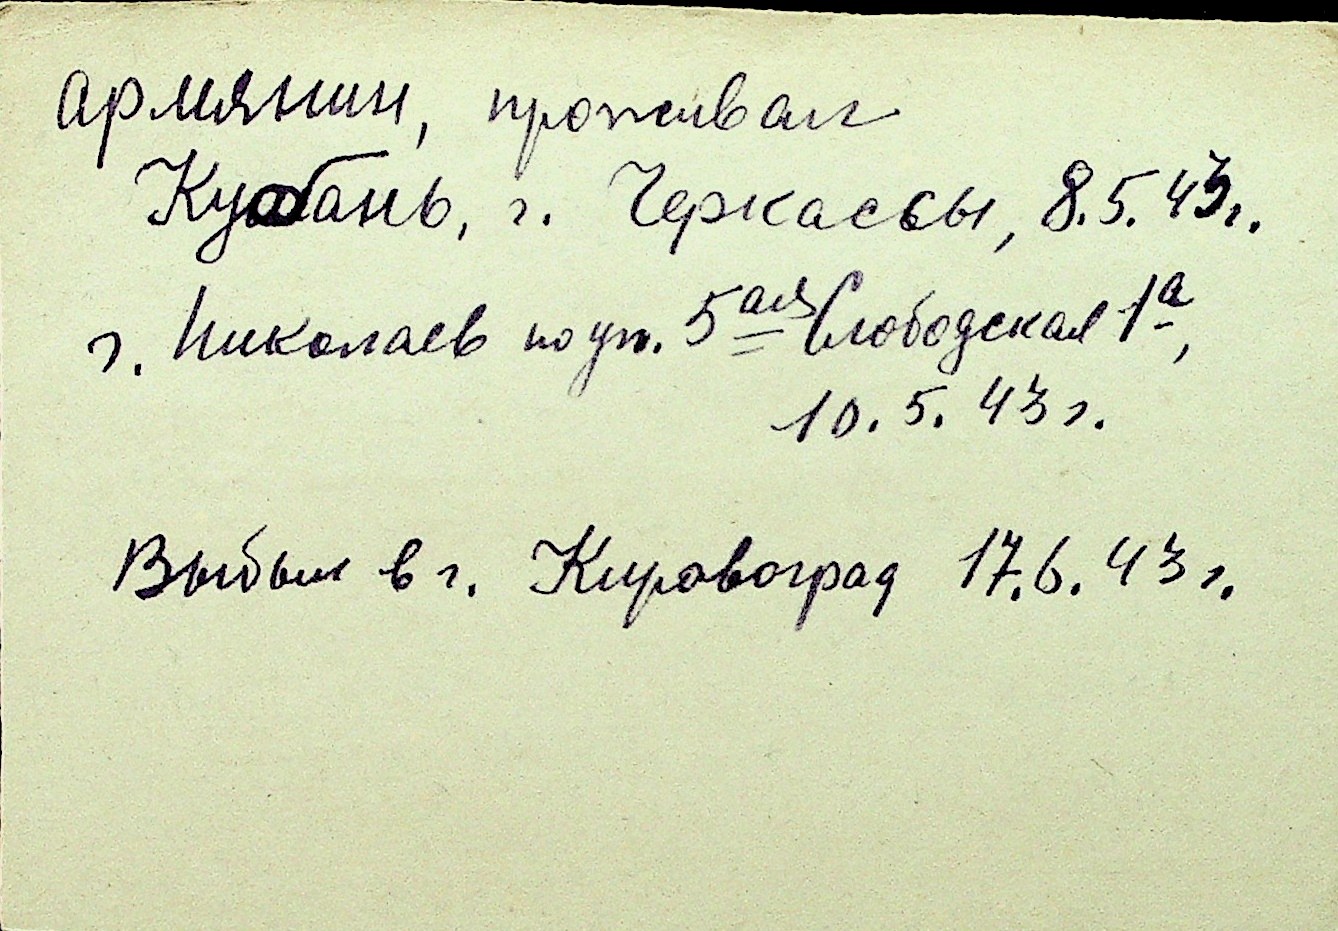 армянин, проживал
Кубань, г. Черкассы, 8.5.43г.
г. Николаев по ул. 5ая Слободская 1а,
10.5.43г.
Выбыл в г. Кировоград 17.6.43г.